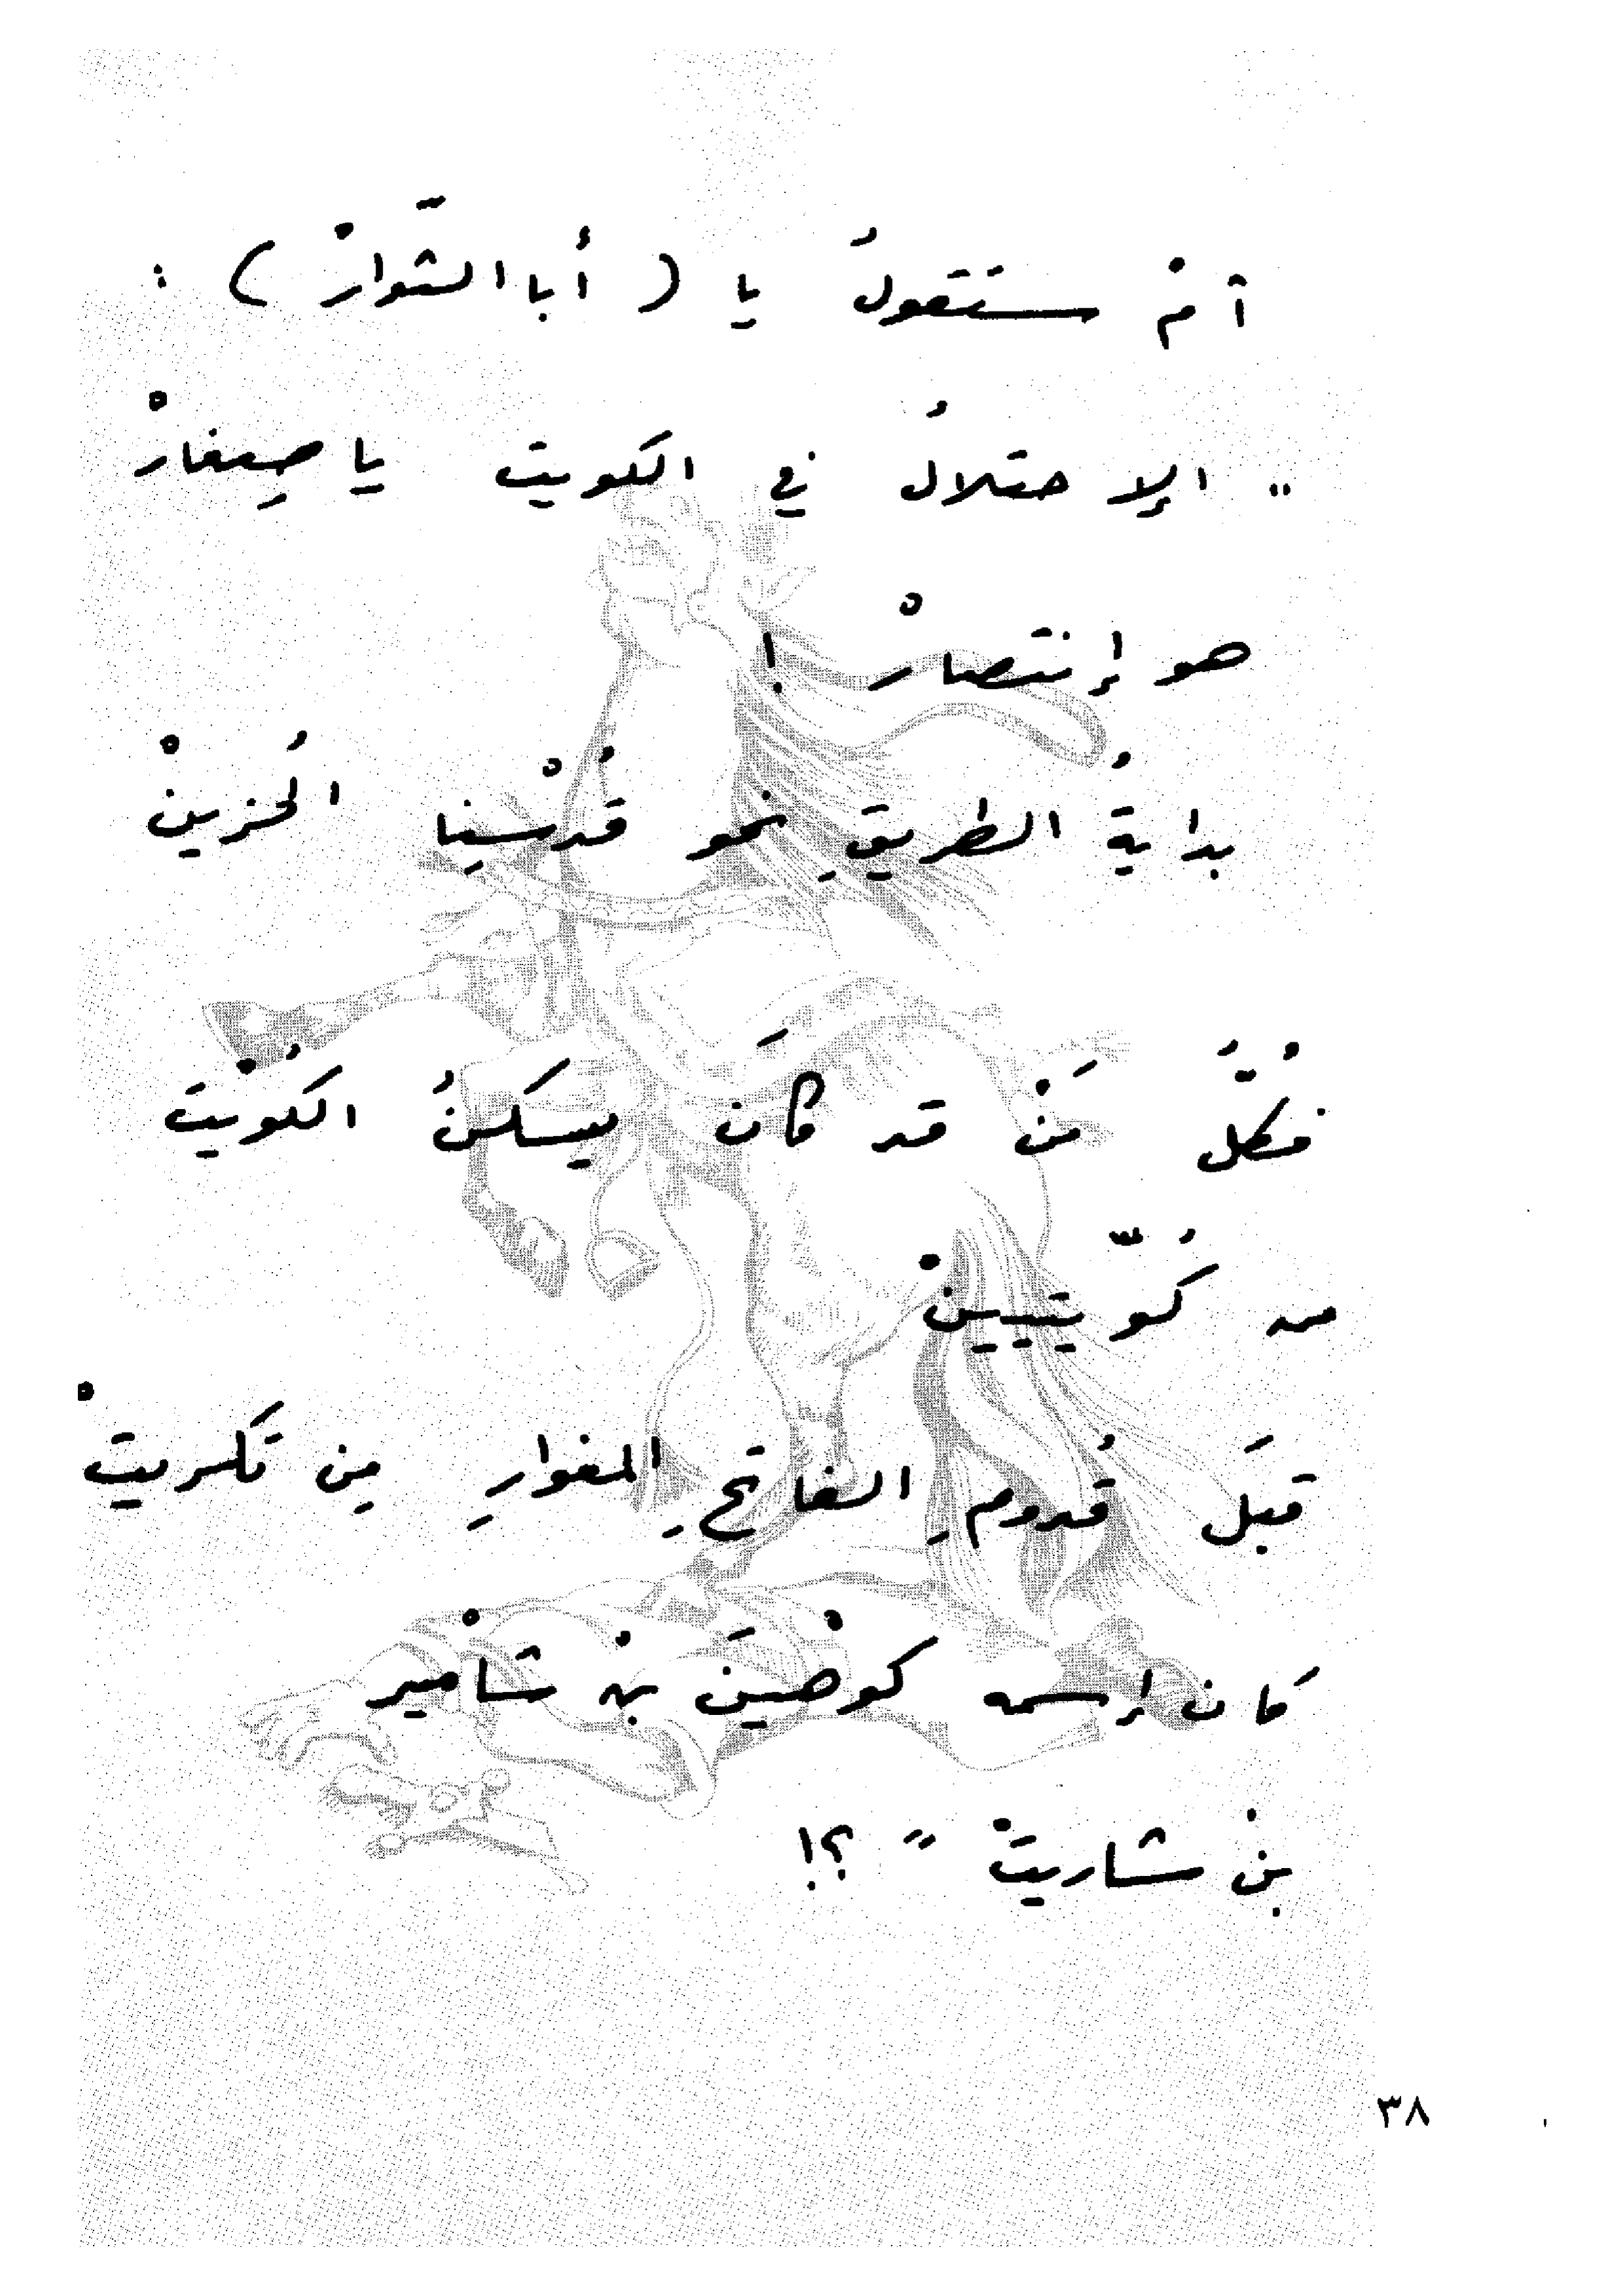 أمْ ستَتقولُ يا ( أبا الثّوارْ ) :
" الإحتلالُ في الكويت يا صِغارْ
هو إنتصارْ !
بدايةُ الطريقِ نحو قُدْسِنا الحُزينْ
فكُلُّ مَنْ قد كانَ يسكنُ الكُوْيت
من كُوّيتيينْ
قبَل قُدومِ الفاتحِ المغوارِ مِن تَكريتْ
كَان إسمه كوهْينَ بنْ شامْير
بنْ شاريتْ " ؟!
٣٨